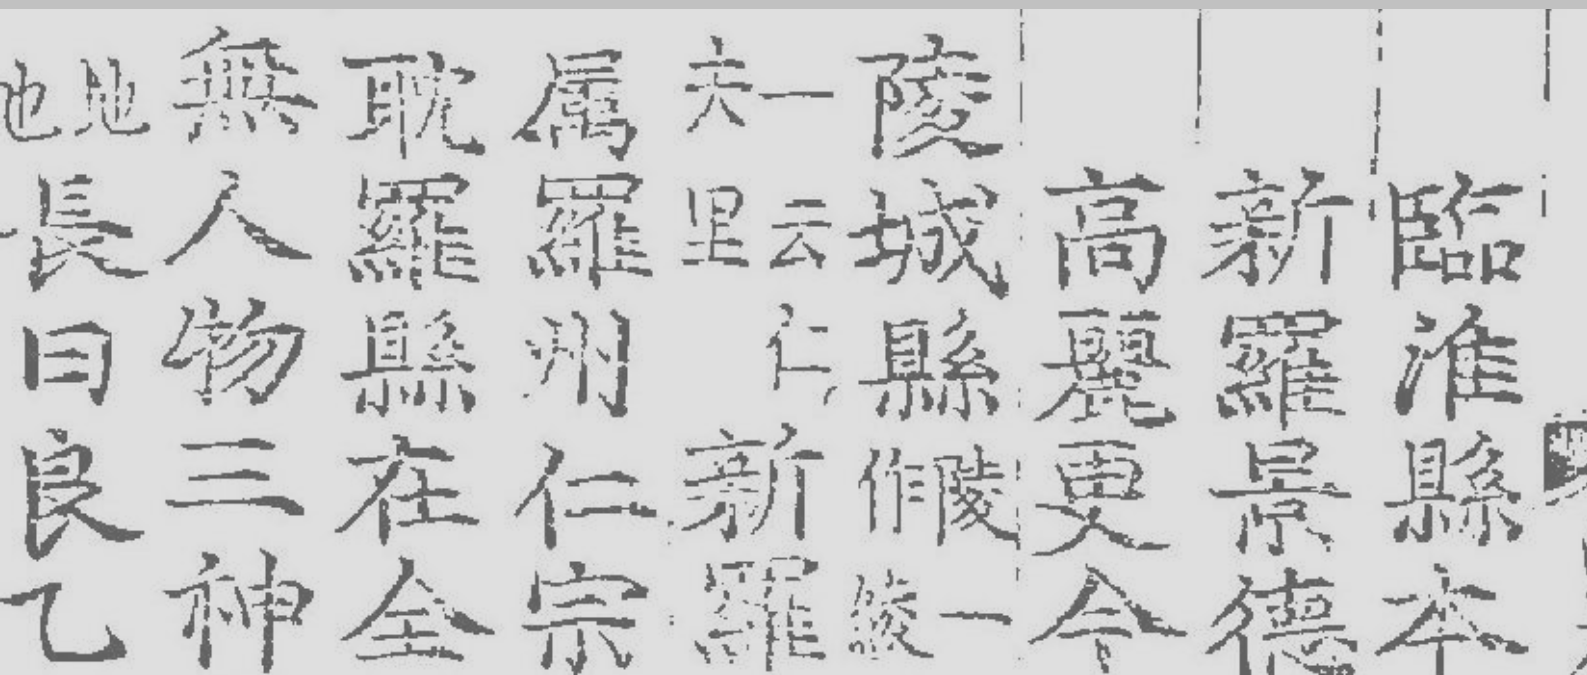 臨淮縣本
新羅景德
高麗更今
陵城縣陵一作㥄
一云仁夫里新羅
属羅州仁宗
耽羅縣在全
無人物三神
地也長曰良乙